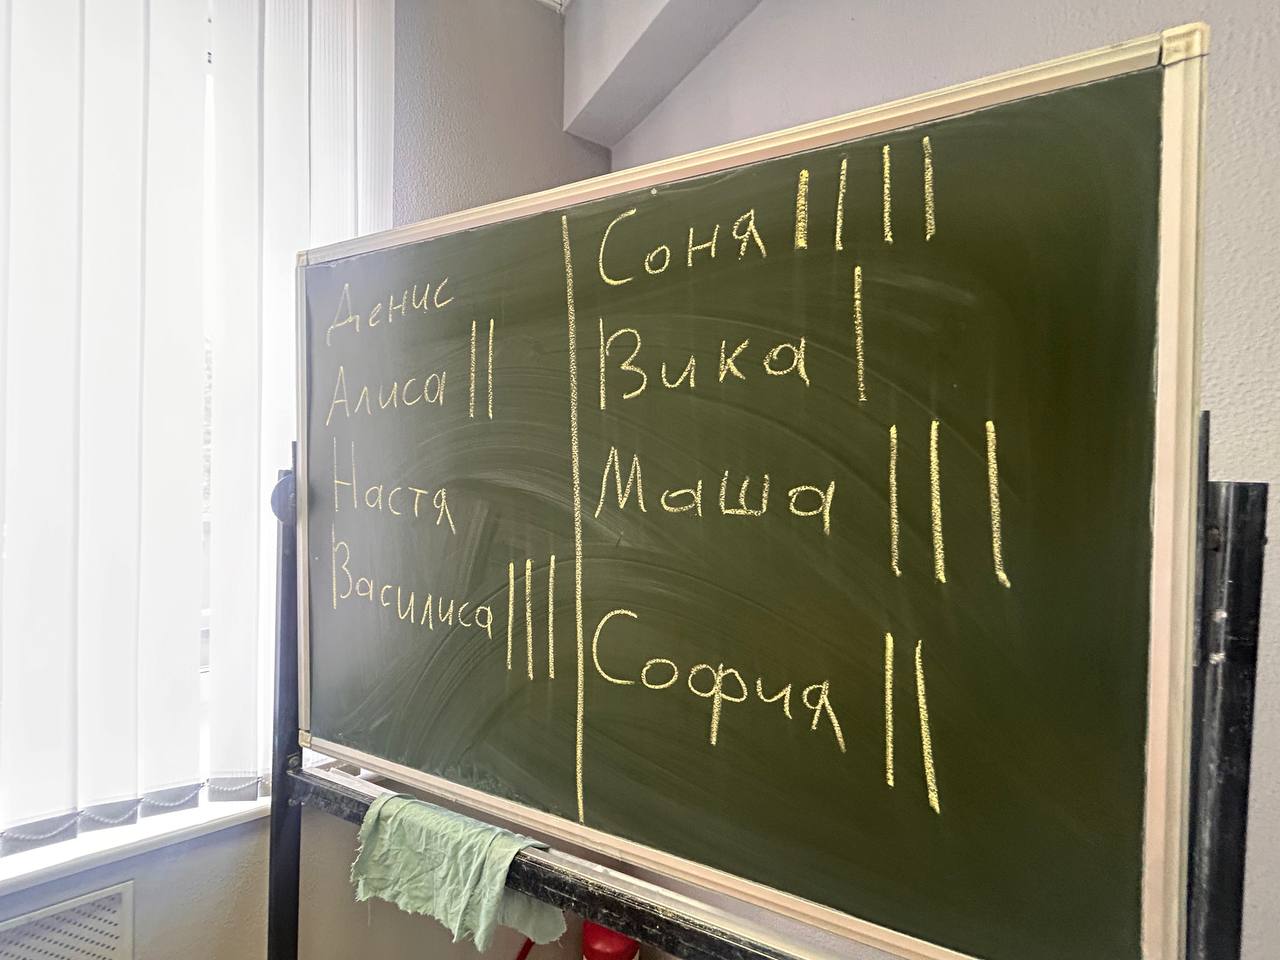 Денис
Алиса ||
Настя
Василиса |||
Соня ||||
Вика |
Маша |||
София ||